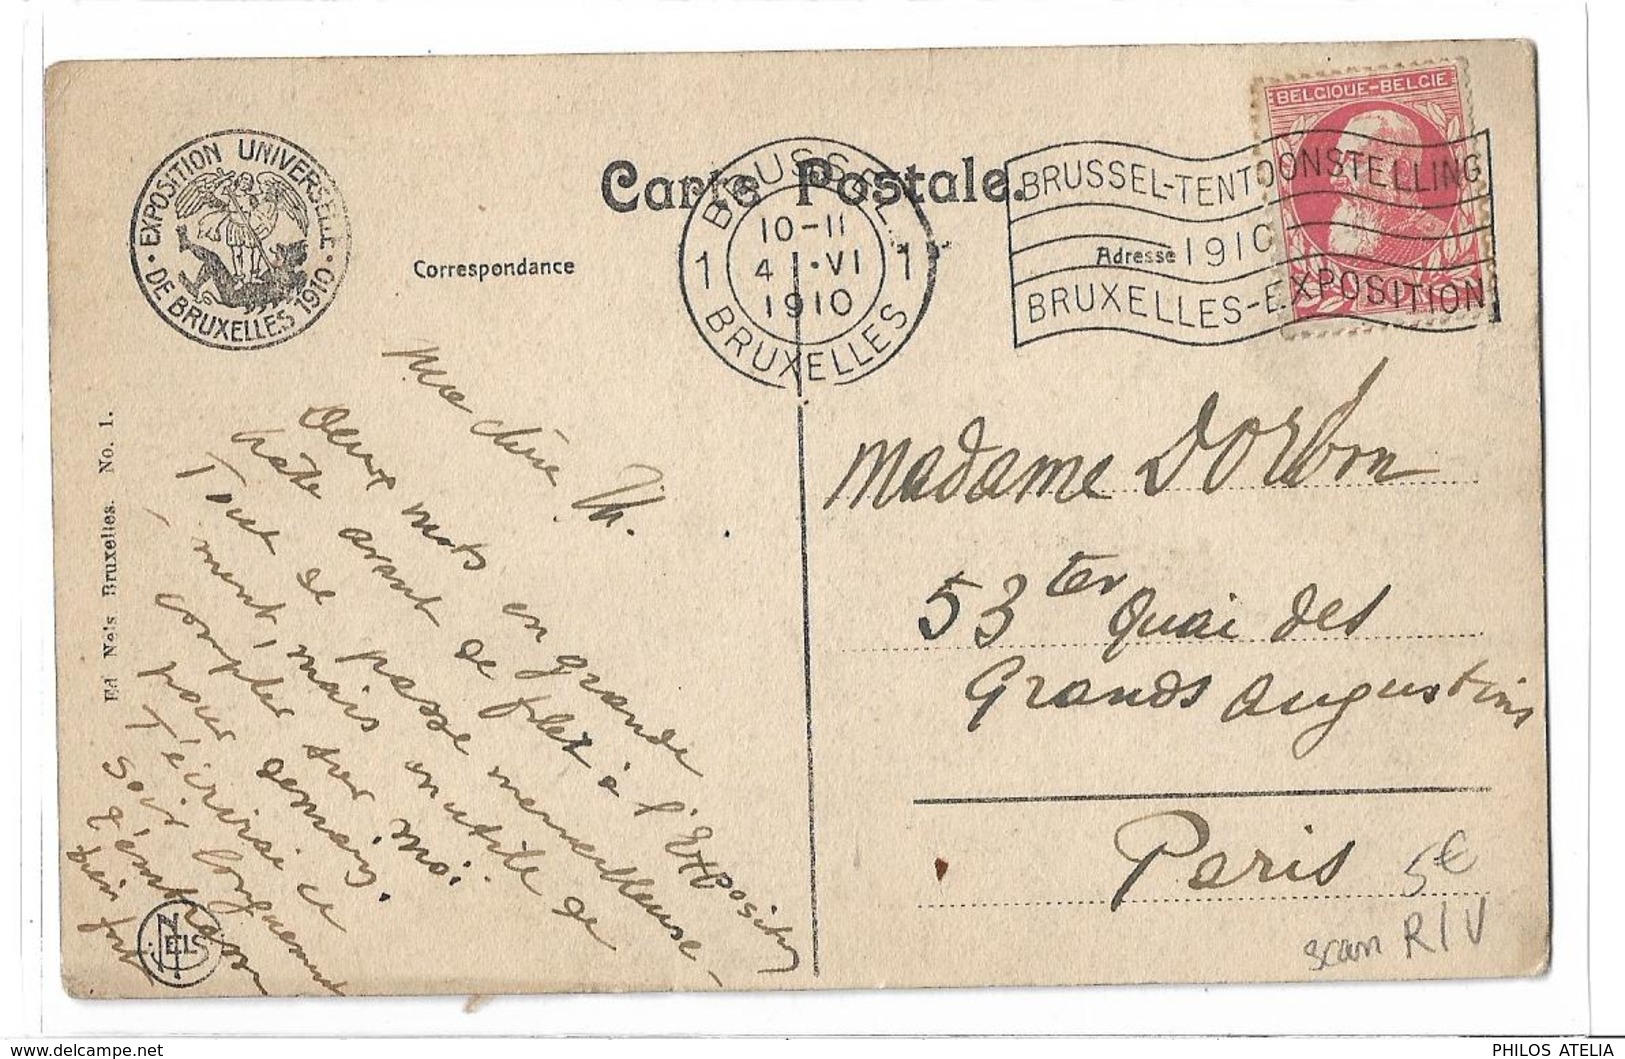 EXPOSITION UNIVERSELLE
• DE BRUXELLES 1910 •
Carte Postale.
Correspondance
Adresse
BRUSSEL
10-11
1 4 VI 1
1910
BRUXELLES
BRUSSEL-TENTOONSTELLING
1910
BRUXELLES-EXPOSITION
BELGIQUE-BELGIE
Ed Nels Bruxelles. No. 1.
Ma chère Th.
Deux mots en grande
hâte avant de filer à l'Exposition
Tout se passe merveilleuse-
ment, mais inutile de
compter sur moi
pour demain.
T'écrirai ce
soir longuement
t'embrasse
bien fort
NELS
Madame Dorbon
53 ter Quai des
Grands Augustins
Paris
5€
scan R/V
PHILOS ATELIA
https://www.delcampe.net